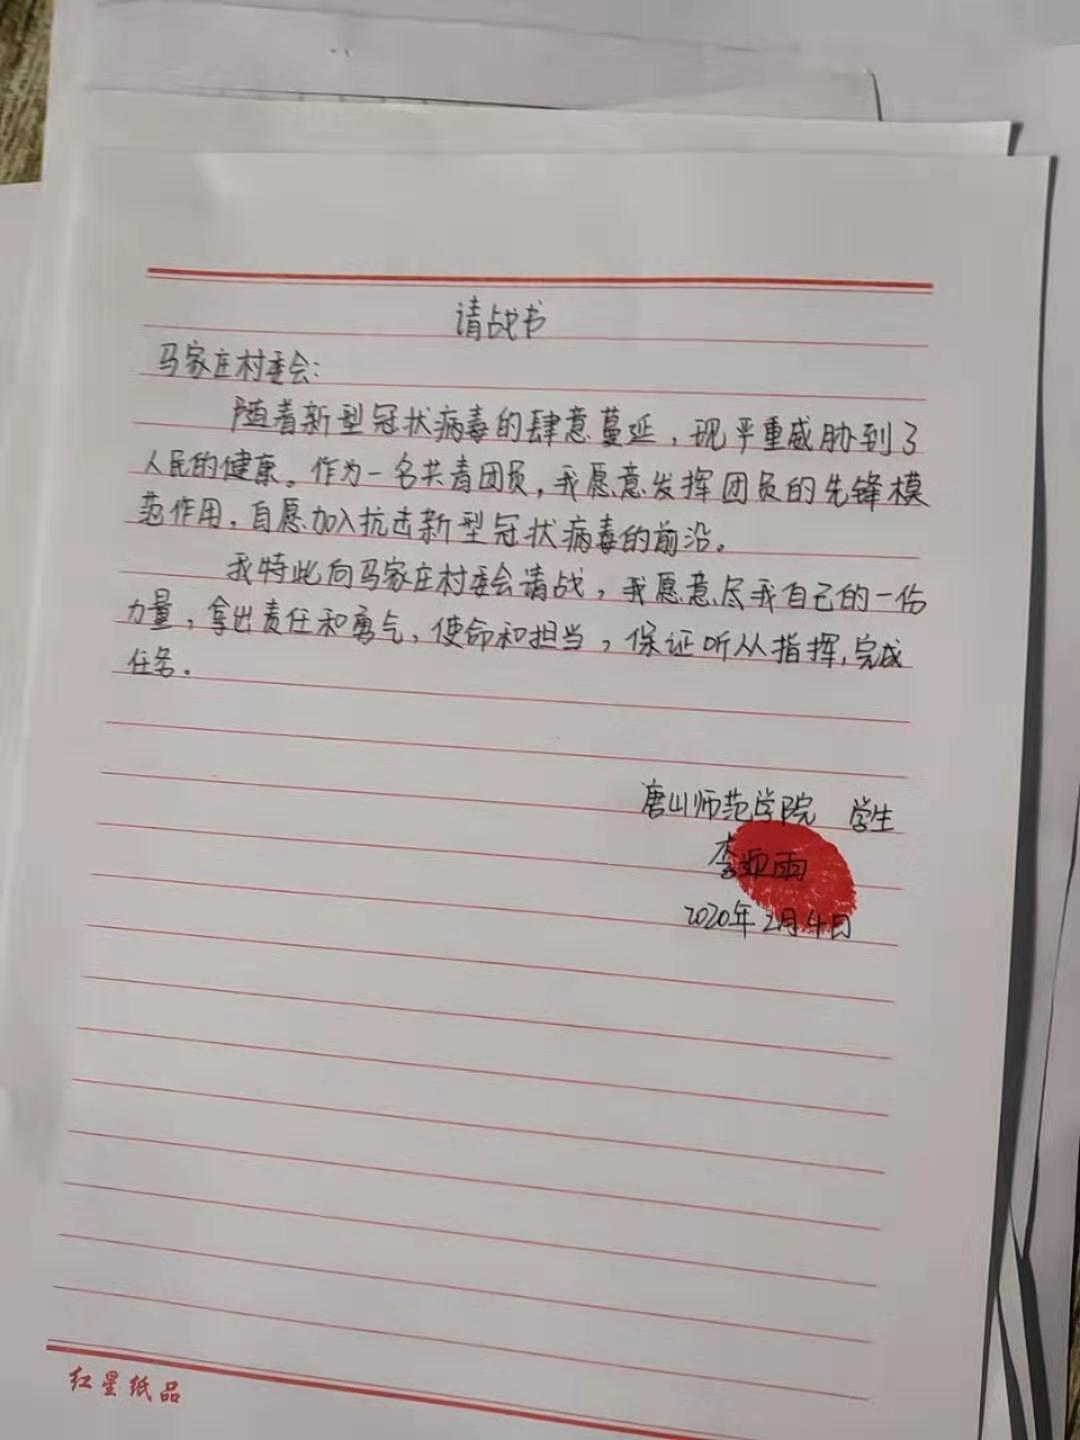 请战书
马家庄村委会：
随着新型冠状病毒的肆意蔓延，现严重威胁到了
人民的健康。作为一名共青团员，我愿意发挥团员的先锋模
范作用，自愿加入抗击新型冠状病毒的前沿。
我特此向马家庄村委会请战，我愿意尽我自己的一份
力量，拿出责任和勇气，使命和担当，保证听从指挥，完成
任务。
唐山师范学院 学生
李 雨
2020年2月4日
红星纸品